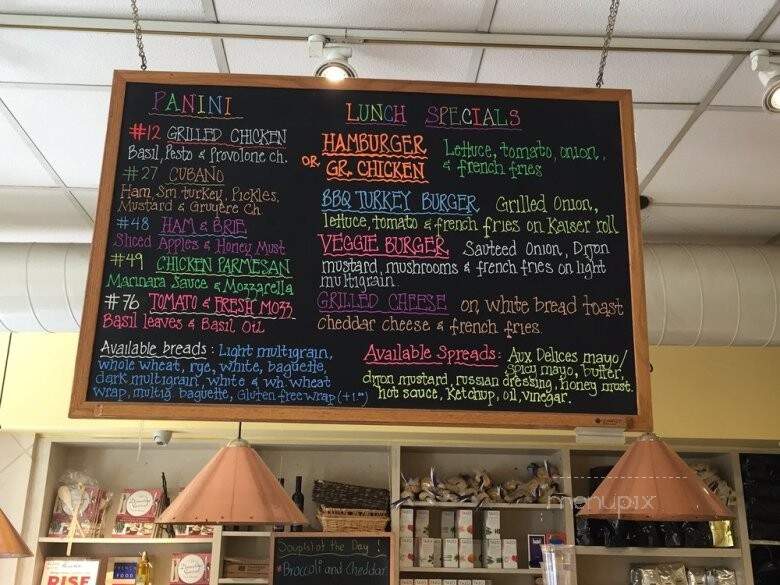 PANINI
#12 GRILLED CHICKEN
Basil, Pesto & Provolone ch.
#27 CUBANO
Ham, Sm turkey, Pickles,
Mustard & Gruyere Ch
#48 HAM & BRIE
Sliced Apples & Honey Must
#49 CHICKEN PARMESAN
Marinara Sauce & Mozzarella
#76 TOMATO & FRESH MOZZ
Basil leaves & Basil Oil
LUNCH SPECIALS
HAMBURGER
OR GR. CHICKEN
Lettuce, tomato, onion,
& french fries
BBQ TURKEY BURGER Grilled Onion,
lettuce, tomato & french fries on Kaiser roll
VEGGIE BURGER Sauteed Onion, Dijon
mustard, mushrooms & french fries on light
multigrain
GRILLED CHEESE on white bread toast
cheddar cheese & french fries
Available breads: Light multigrain,
whole wheat, rye, white, baguette,
dark multigrain, white & wh. wheat
wrap, multig. baguette, Gluten free wrap (+1.00)
Available Spreads: Aux Delices mayo/
spicy mayo, butter,
dijon mustard, russian dressing, honey must.
hot sauce, ketchup, oil, vinegar.
menupix
Soup(s) of the Day!
*Broccoli and Cheddar
RISE